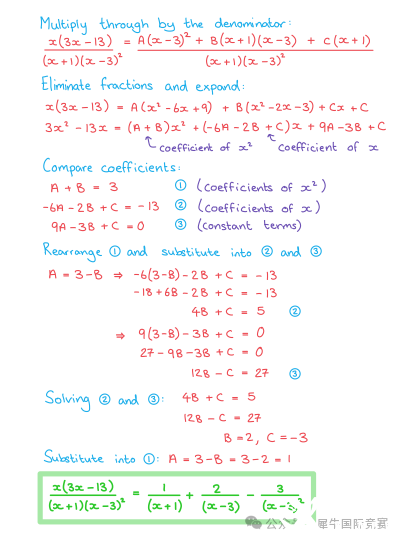 Multiply through by the denominator:
x(3x-13)/((x+1)(x-3)²) = (A(x-3)² + B(x+1)(x-3) + C(x+1))/((x+1)(x-3)²)
Eliminate fractions and expand:
x(3x-13) = A(x²-6x+9) + B(x²-2x-3) + Cx + C
3x² - 13x = (A+B)x² + (-6A-2B+C)x + 9A-3B+C
coefficient of x² coefficient of x
Compare coefficients:
A + B = 3 ① (coefficients of x²)
-6A - 2B + C = -13 ② (coefficients of x)
9A - 3B + C = 0 ③ (constant terms)
Rearrange ① and substitute into ② and ③
A = 3-B ⇒ -6(3-B) - 2B + C = -13
-18 + 6B - 2B + C = -13
4B + C = 5 ②
⇒ 9(3-B) - 3B + C = 0
27 - 9B - 3B + C = 0
12B - C = 27 ③
Solving ② and ③: 4B + C = 5
12B - C = 27
B = 2, C = -3
Substitute into ①: A = 3-B = 3-2 = 1
x(3x-13)/((x+1)(x-3)²) = 1/(x+1) + 2/(x-3) - 3/(x-3)²
犀牛国际竞赛